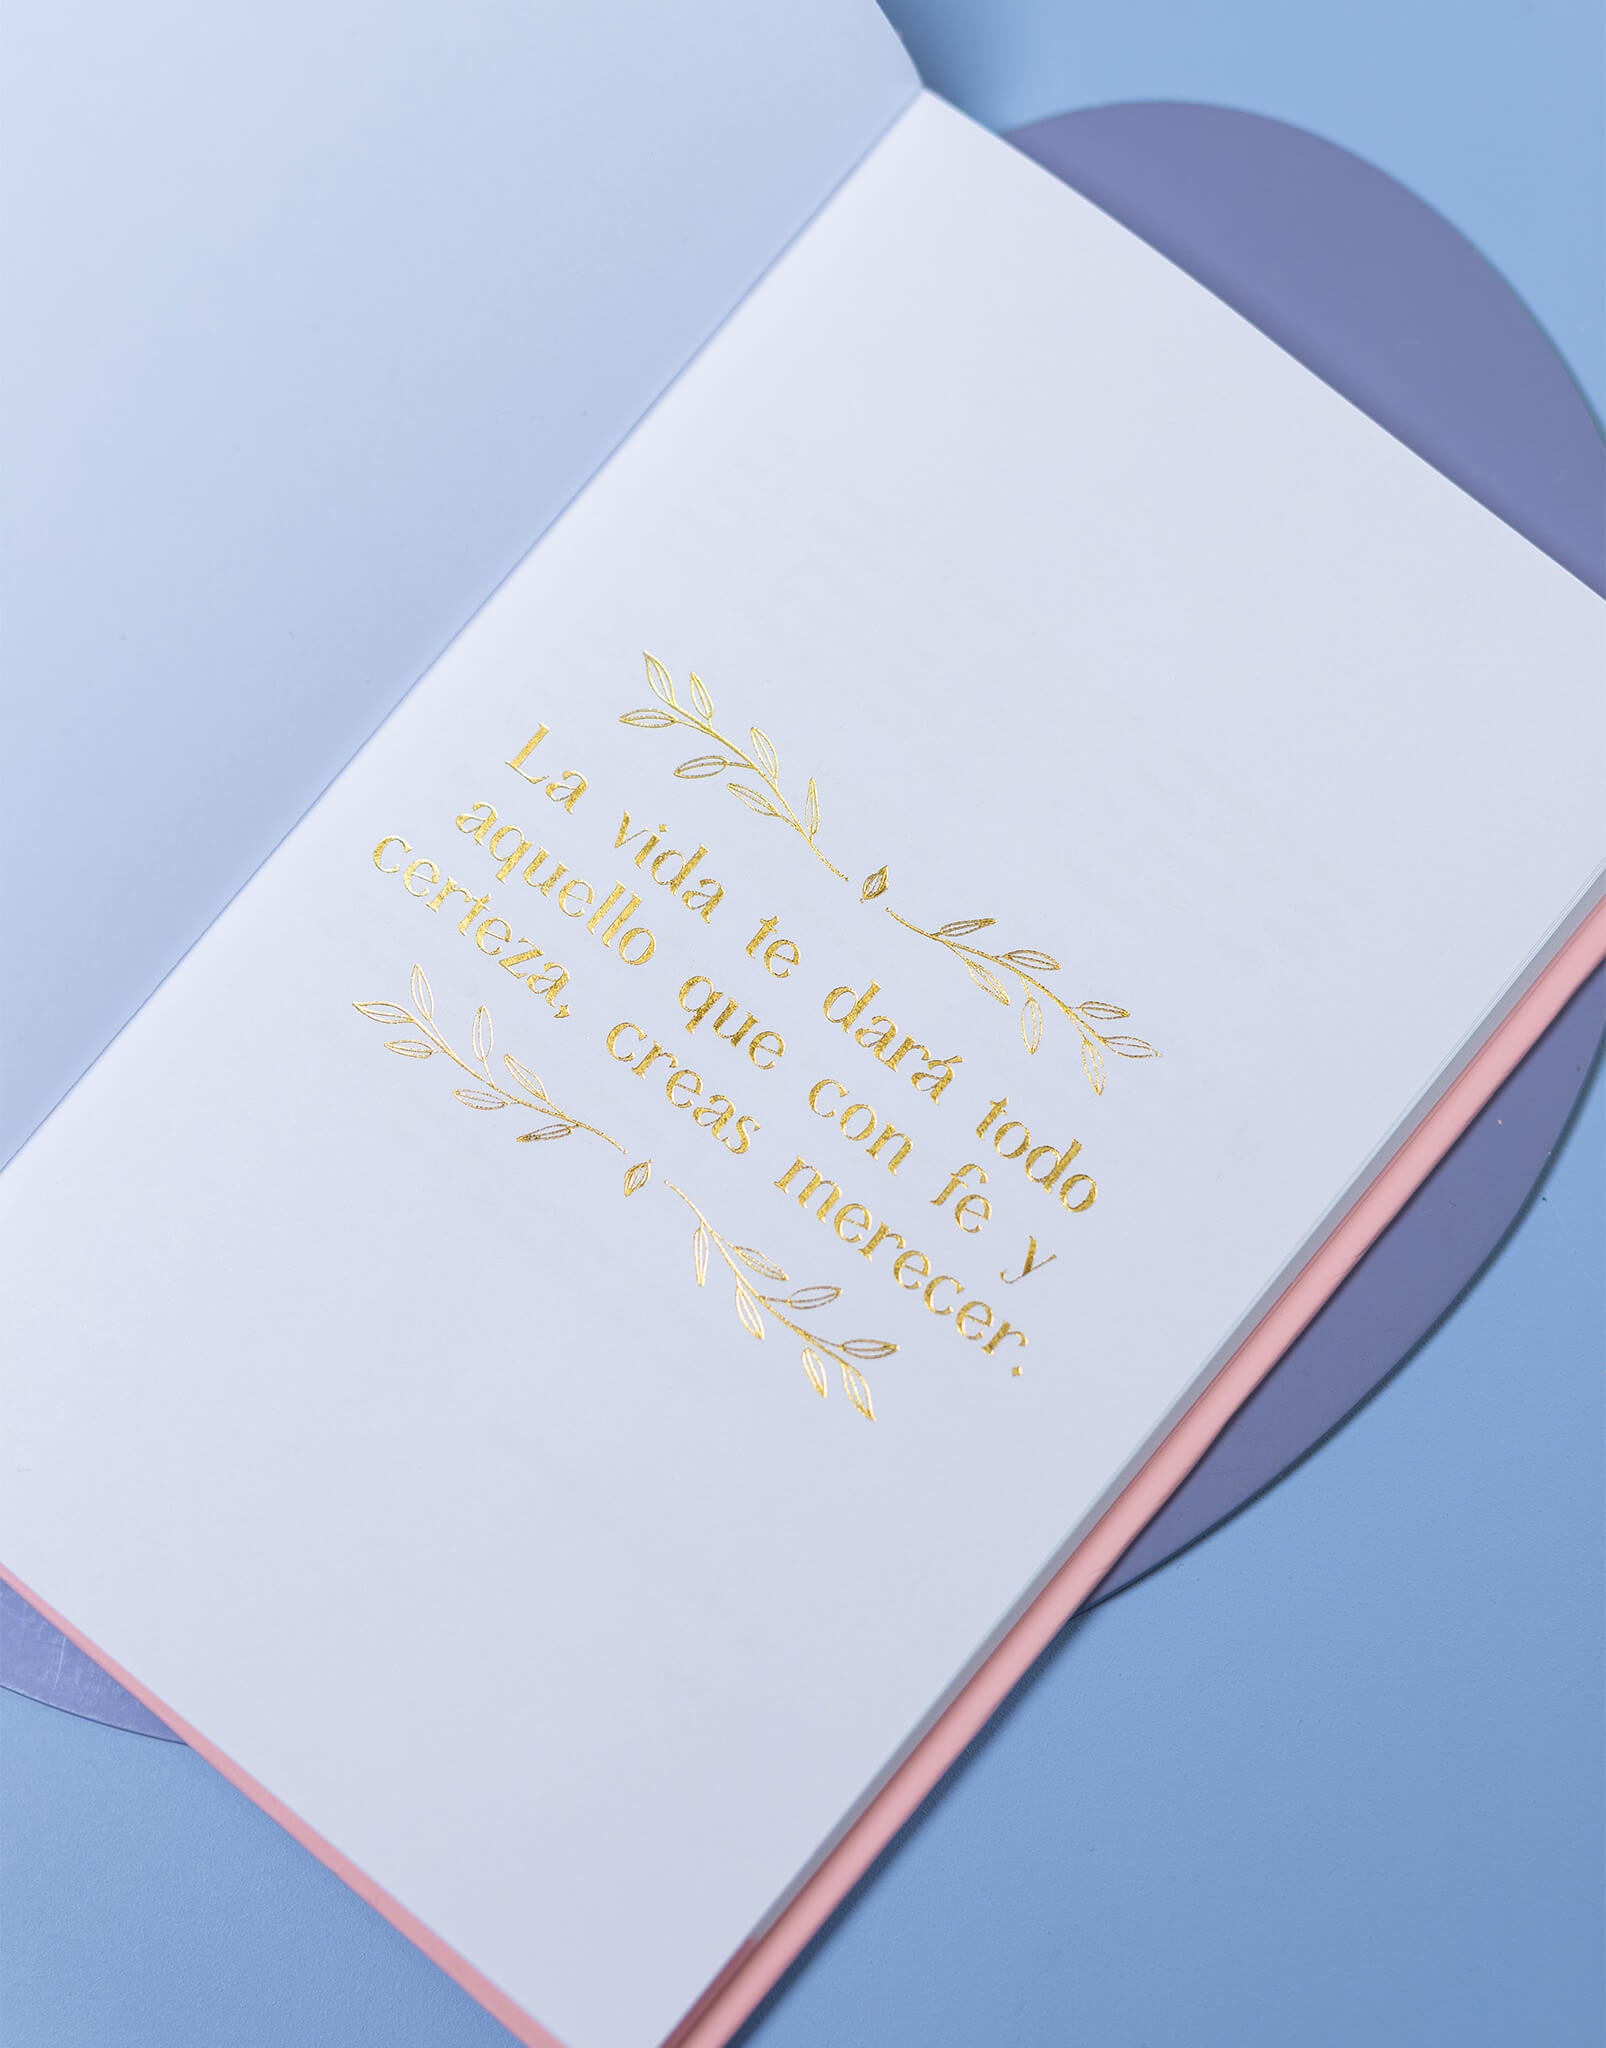 La vida te dará todo
aquello que con fe y
certeza, creas merecer.